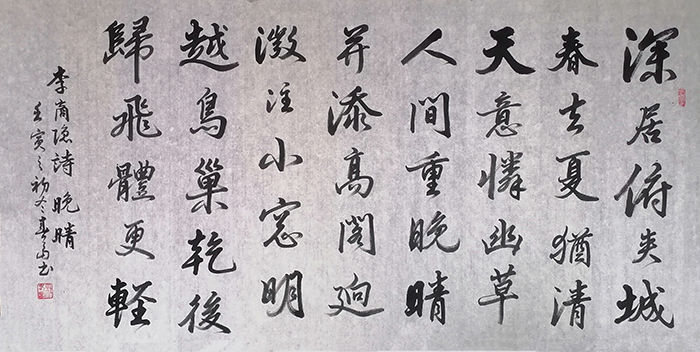 深居俯夾城
春去夏猶清
天意憐幽草
人間重晚晴
并添高閣迥
微注小窓明
越鳥巢乾後
歸飛體更輕
李商隱詩晚晴
壬寅之初冬書